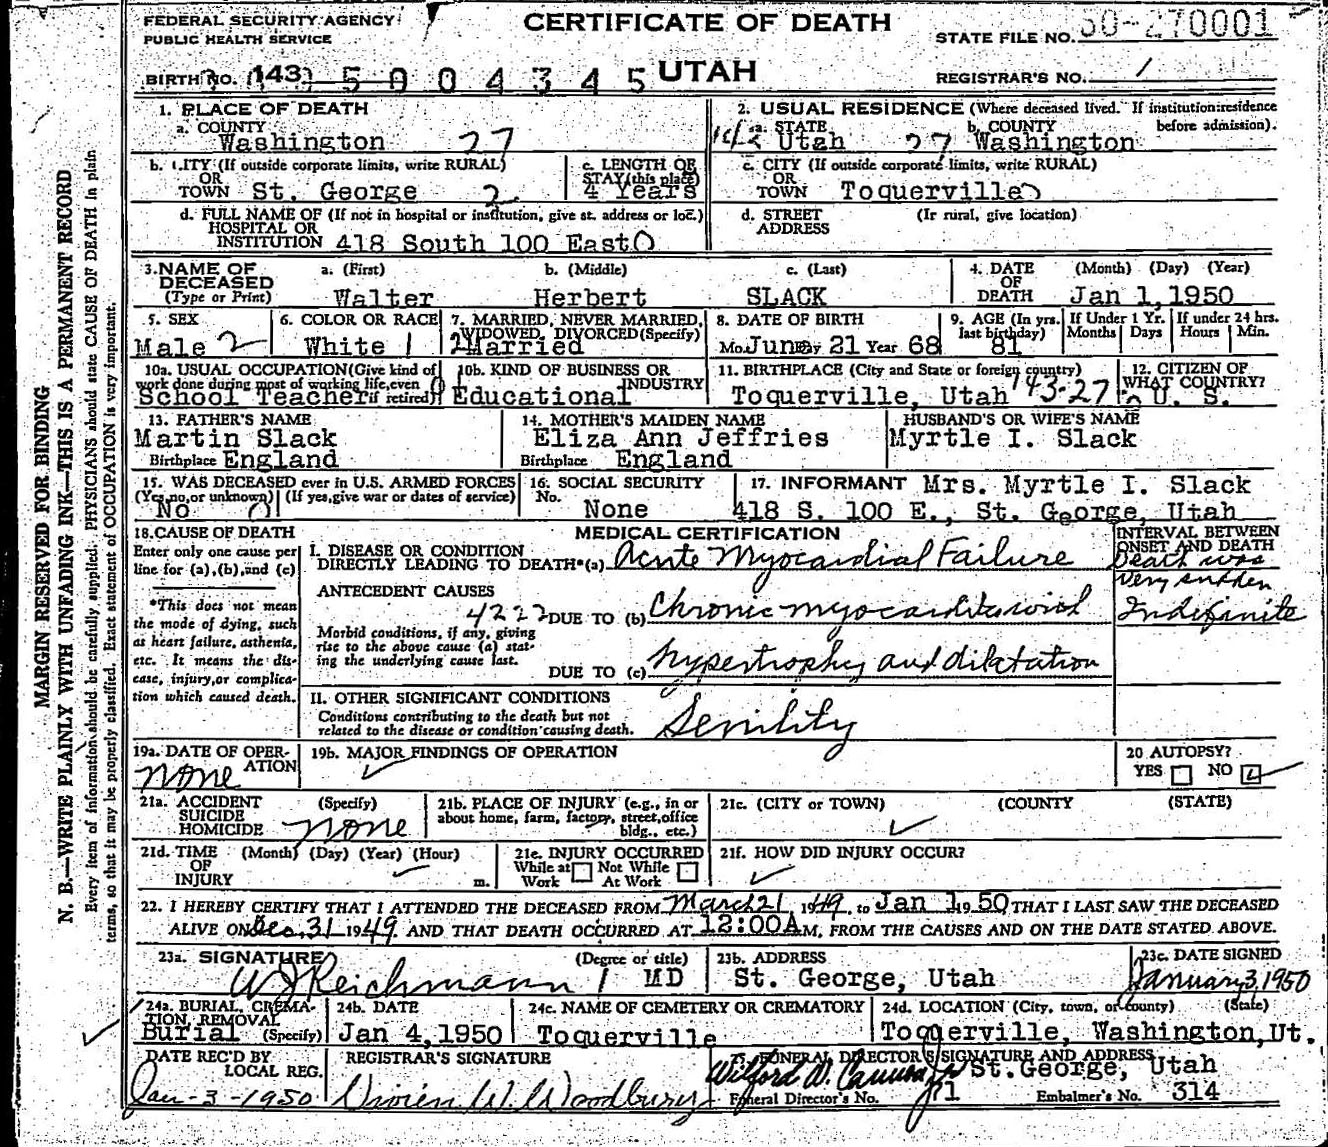 FEDERAL SECURITY AGENCY
PUBLIC HEALTH SERVICE
CERTIFICATE OF DEATH
STATE FILE NO. 50-270001
BIRTH NO. 143
5004345 UTAH
REGISTRAR'S NO. 1
1. PLACE OF DEATH
a. COUNTY
Washington 27
2. USUAL RESIDENCE (Where deceased lived. If institution: residence before admission).
a. STATE b. COUNTY
Utah 27 Washington
b. CITY (If outside corporate limits, write RURAL)
OR
TOWN St. George 2
c. LENGTH OF
STAY (this place)
4 Years
c. CITY (If outside corporate limits, write RURAL)
OR
TOWN Toquerville
d. FULL NAME OF (If not in hospital or institution, give st. address or loc.)
HOSPITAL OR
INSTITUTION 418 South 100 East 0
d. STREET (If rural, give location)
ADDRESS
3. NAME OF DECEASED
(Type or Print)
a. (First) b. (Middle) c. (Last)
Walter Herbert SLACK
4. DATE OF DEATH (Month) (Day) (Year)
Jan 1, 1950
5. SEX
Male 2
6. COLOR OR RACE
White 1
7. MARRIED, NEVER MARRIED,
WIDOWED, DIVORCED (Specify)
2 Married
8. DATE OF BIRTH
Mo. June Day 21 Year 68
9. AGE (In yrs. last birthday)
81
If Under 1 Yr.
Months Days
If under 24 hrs.
Hours Min.
10a. USUAL OCCUPATION (Give kind of
work done during most of working life, even
if retired)
School Teacher
10b. KIND OF BUSINESS OR
INDUSTRY
Educational
11. BIRTHPLACE (City and State or foreign country)
Toquerville, Utah 143-27
12. CITIZEN OF
WHAT COUNTRY?
U. S.
13. FATHER'S NAME
Martin Slack
Birthplace England
14. MOTHER'S MAIDEN NAME
Eliza Ann Jeffries
Birthplace England
HUSBAND'S OR WIFE'S NAME
Myrtle I. Slack
15. WAS DECEASED ever in U.S. ARMED FORCES
(Yes, no, or unknown) (If yes, give war or dates of service)
No 0
16. SOCIAL SECURITY
No.
None
17. INFORMANT Mrs. Myrtle I. Slack
418 S. 100 E., St. George, Utah
18. CAUSE OF DEATH
Enter only one cause per
line for (a), (b), and (c)
*This does not mean
the mode of dying, such
as heart failure, asthenia,
etc. It means the dis-
ease, injury, or complica-
tion which caused death.
MEDICAL CERTIFICATION
I. DISEASE OR CONDITION
DIRECTLY LEADING TO DEATH*(a) Acute Myocardial Failure
ANTECEDENT CAUSES
4222 DUE TO (b) Chronic myocarditis with
Morbid conditions, if any, giving
rise to the above cause (a) stat-
ing the underlying cause last.
DUE TO (c) hypertrophy and dilatation
INTERVAL BETWEEN
ONSET AND DEATH
Death was
very sudden
Indefinite
II. OTHER SIGNIFICANT CONDITIONS
Conditions contributing to the death but not
related to the disease or condition causing death.
Senility
19a. DATE OF OPER-
ATION
none
19b. MAJOR FINDINGS OF OPERATION
20 AUTOPSY?
YES NO
21a. ACCIDENT (Specify)
SUICIDE
HOMICIDE none
21b. PLACE OF INJURY (e.g., in or
about home, farm, factory, street, office
bldg., etc.)
21c. (CITY or TOWN) (COUNTY) (STATE)
21d. TIME (Month) (Day) (Year) (Hour)
OF
INJURY m.
21e. INJURY OCCURRED
While at Work Not While At Work
21f. HOW DID INJURY OCCUR?
22. I HEREBY CERTIFY THAT I ATTENDED THE DECEASED FROM March 21 1949, to Jan 1 1950 THAT I LAST SAW THE DECEASED
ALIVE ON Dec. 31 1949. AND THAT DEATH OCCURRED AT 12:00A M, FROM THE CAUSES AND ON THE DATE STATED ABOVE.
23a. SIGNATURE (Degree or title)
W J Reichmann 1 MD
23b. ADDRESS
St. George, Utah
23c. DATE SIGNED
January 3, 1950
24a. BURIAL, CREMA-
TION, REMOVAL
Burial (Specify)
24b. DATE
Jan 4, 1950
24c. NAME OF CEMETERY OR CREMATORY
Toquerville
24d. LOCATION (City, town, or county) (State)
Toquerville, Washington, Ut.
DATE REC'D BY
LOCAL REG.
Jan-3-1950
REGISTRAR'S SIGNATURE
Vivien W. Woodbury
25. FUNERAL DIRECTOR'S SIGNATURE AND ADDRESS
St. George, Utah
Funeral Director's No. Embalmer's No. 314
MARGIN RESERVED FOR BINDING
N. B.—WRITE PLAINLY WITH UNFADING INK—THIS IS A PERMANENT RECORD
Every item of information should be carefully supplied. PHYSICIANS should state CAUSE OF DEATH in plain
terms, so that it may be properly classified. Exact statement of OCCUPATION is very important.